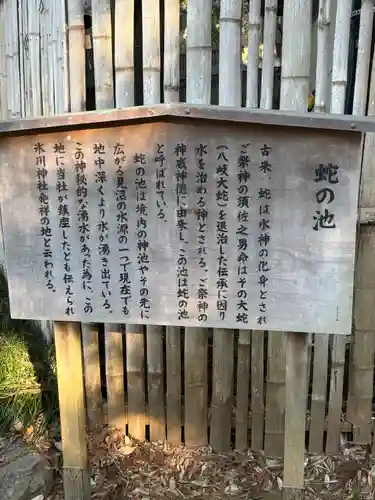 蛇の池
古来、蛇は水神の化身とされ
ご祭神の須佐之男命はその大蛇
（八岐大蛇）を退治した伝承に因り
水を治める神とされる。ご祭神の
神威神徳に由来し、この池は蛇の池
と呼ばれている。
蛇の池は境内の神池やその先に
広がる見沼の水源の一つで現在でも
地中深くより水が湧き出ている。
この神秘的な湧水があった為に、この
地に当社が鎮座したとも伝えられ
氷川神社発祥の地と云われる。